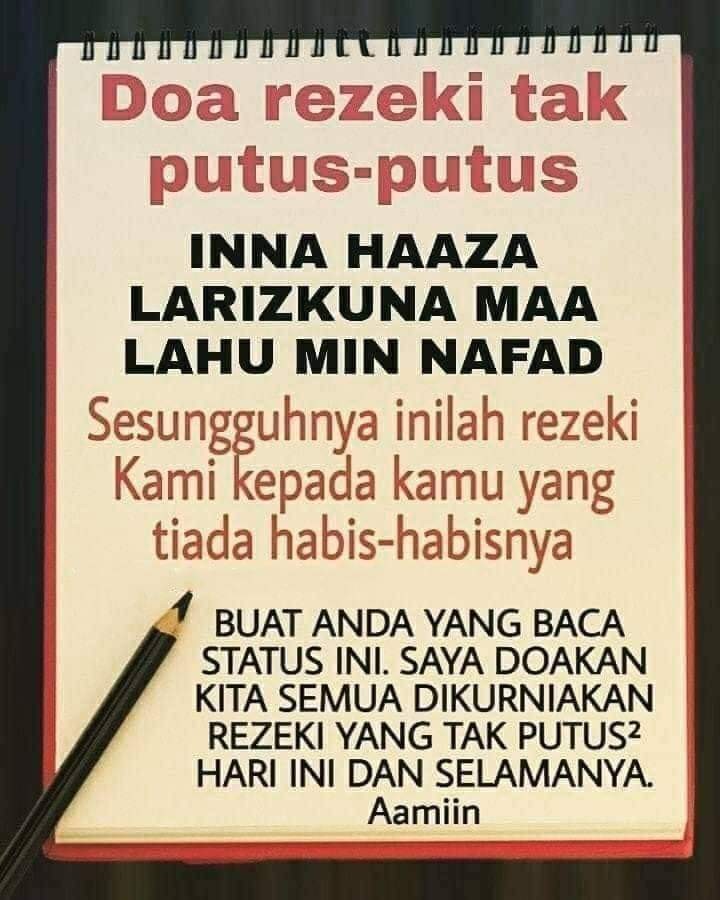 Doa rezeki tak
putus-putus
INNA HAAZA
LARIZKUNA MAA
LAHU MIN NAFAD
Sesungguhnya inilah rezeki
Kami kepada kamu yang
tiada habis-habisnya
BUAT ANDA YANG BACA
STATUS INI. SAYA DOAKAN
KITA SEMUA DIKURNIAKAN
REZEKI YANG TAK PUTUS²
HARI INI DAN SELAMANYA.
Aamiin